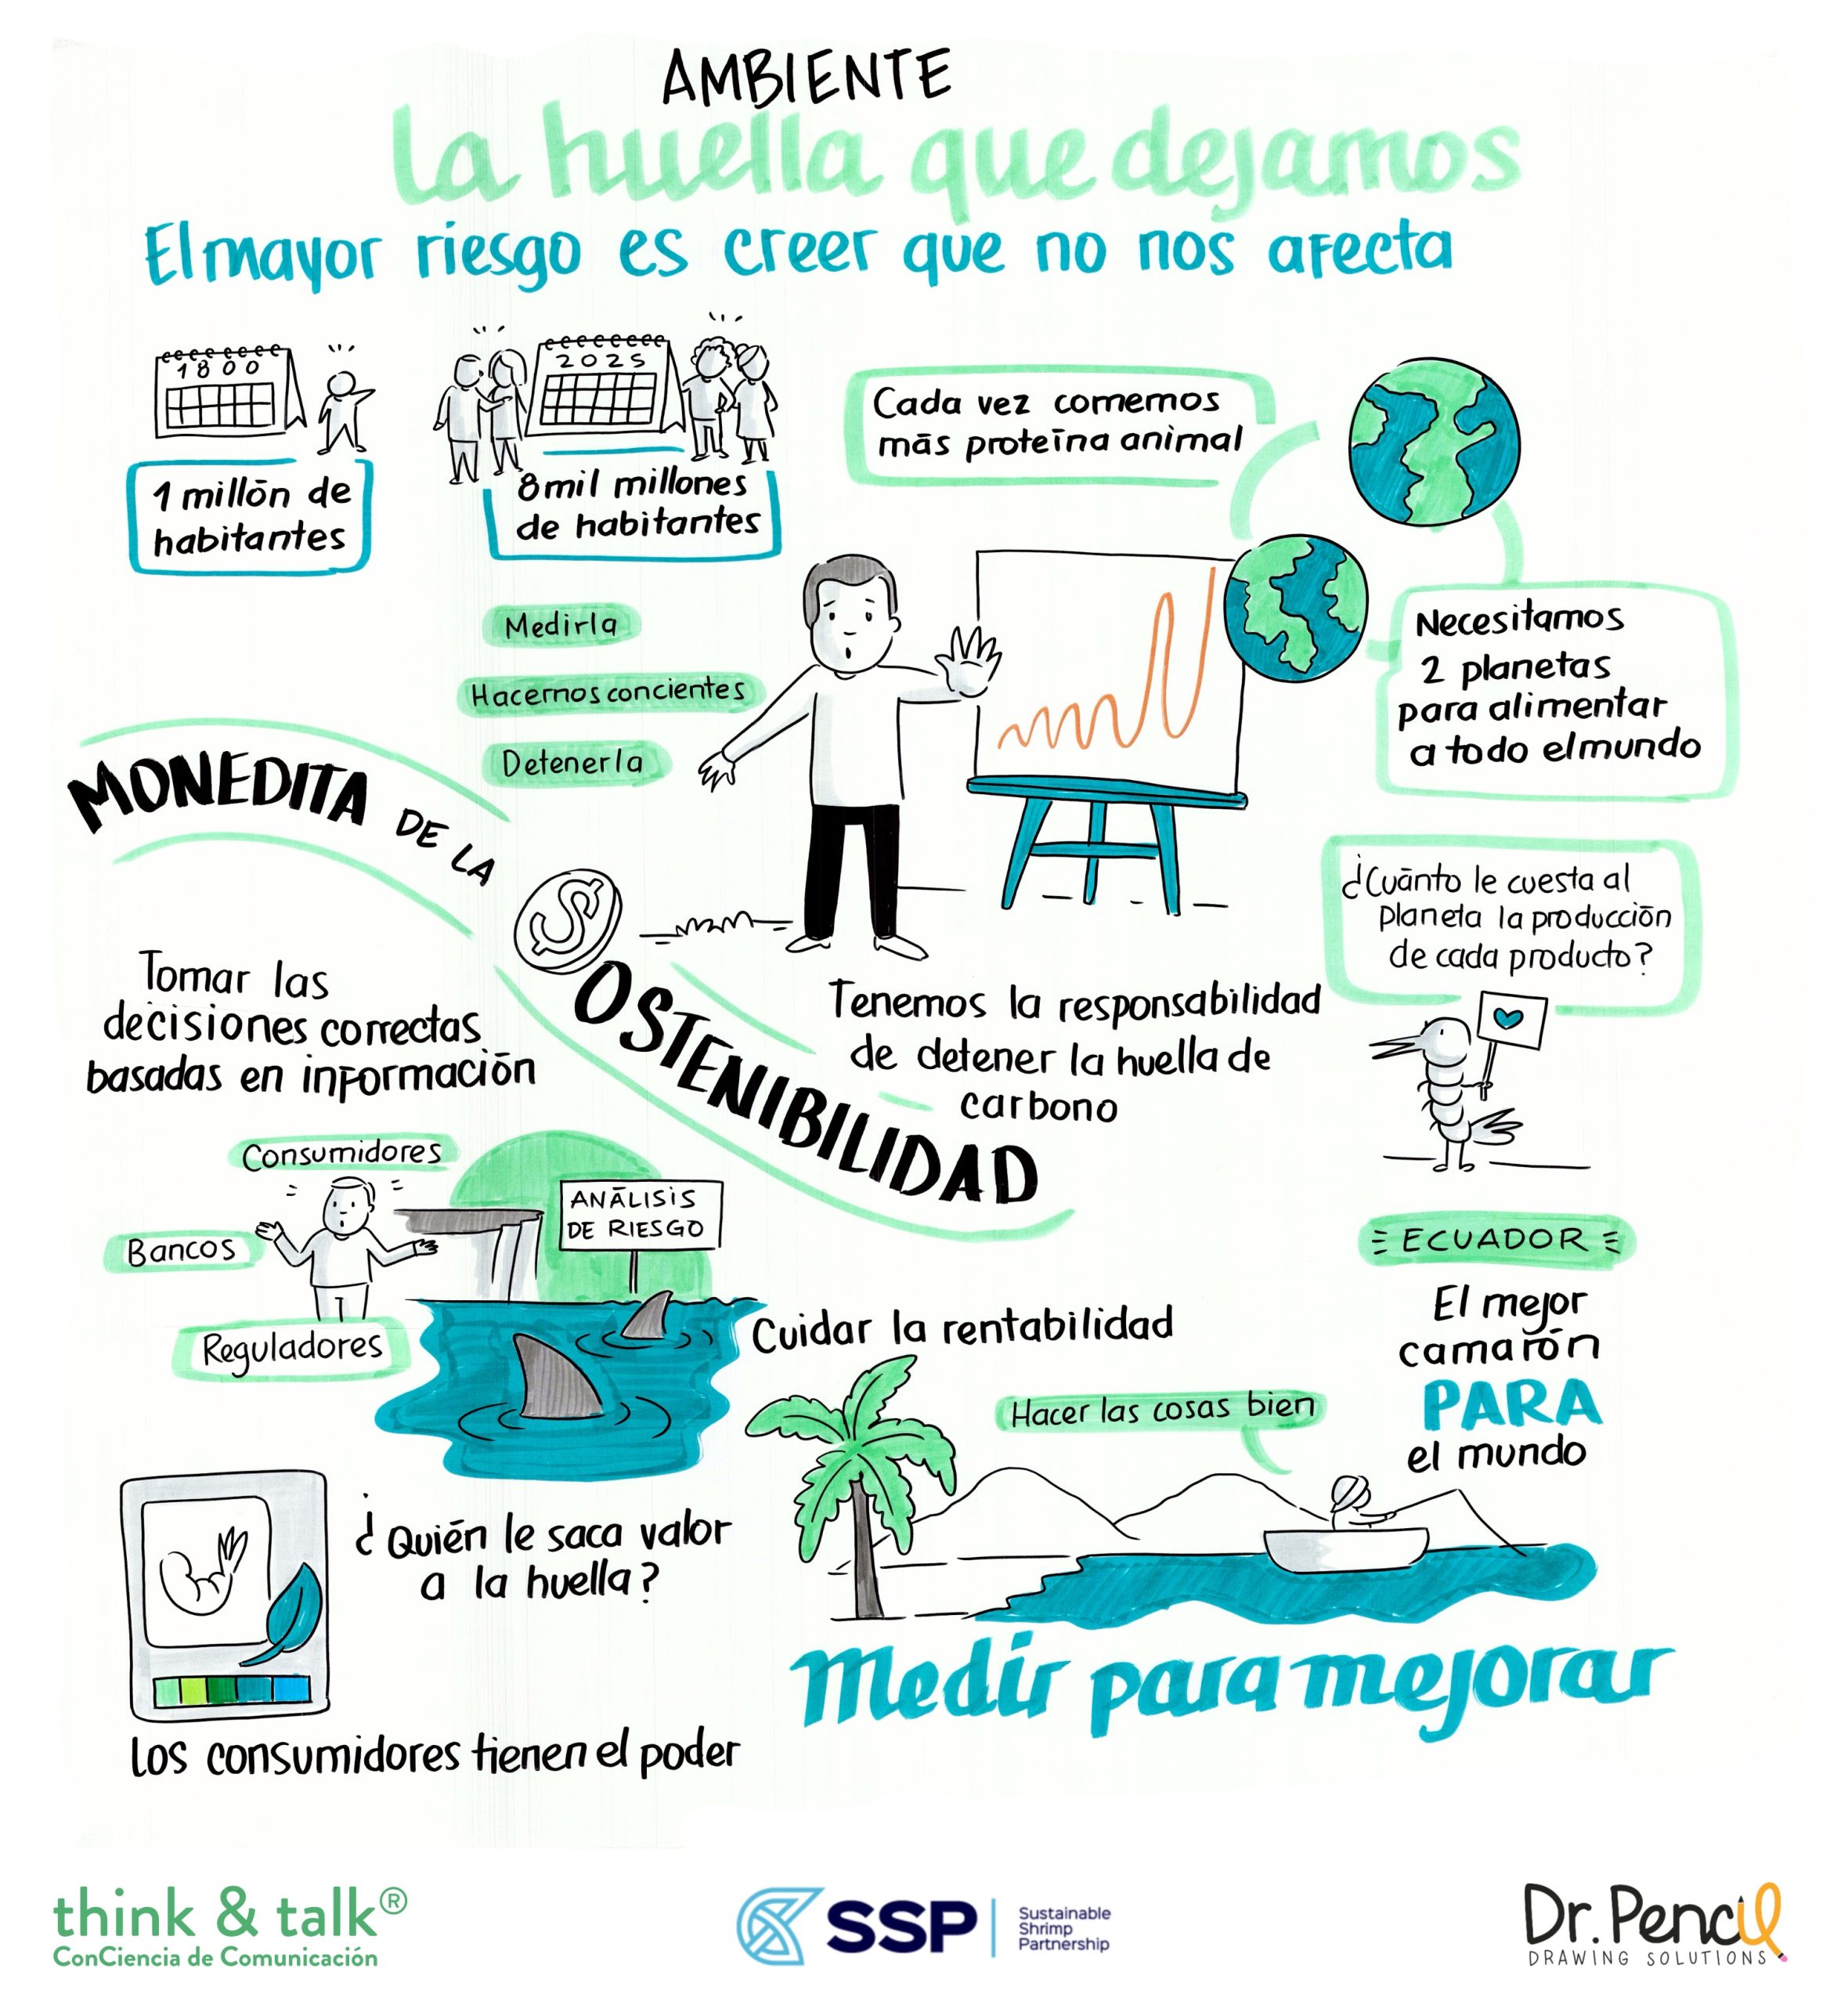 AMBIENTE
La huella que dejamos
El mayor riesgo es creer que no nos afecta
1800
1 millón de
habitantes
2025
8 mil millones
de habitantes
Cada vez comemos
más proteína animal
Necesitamos
2 planetas
para alimentar
a todo el mundo
Medirla
Hacernos concientes
Detenerla
MONEDITA DE LA
$OSTENIBILIDAD
¿Cuánto le cuesta al
planeta la producción
de cada producto?
Tomar las
decisiones correctas
basadas en información
Tenemos la responsabilidad
de detener la huella de
carbono
Consumidores
Bancos
Reguladores
ANÁLISIS
DE RIESGO
Cuidar la rentabilidad
ECUADOR
El mejor
camarón
PARA
el mundo
Hacer las cosas bien
¿Quién le saca valor
a la huella?
Los consumidores tienen el poder
Medir para mejorar
think & talk®
ConCiencia de Comunicación
SSP
Sustainable
Shrimp
Partnership
Dr. Pencil
DRAWING SOLUTIONS